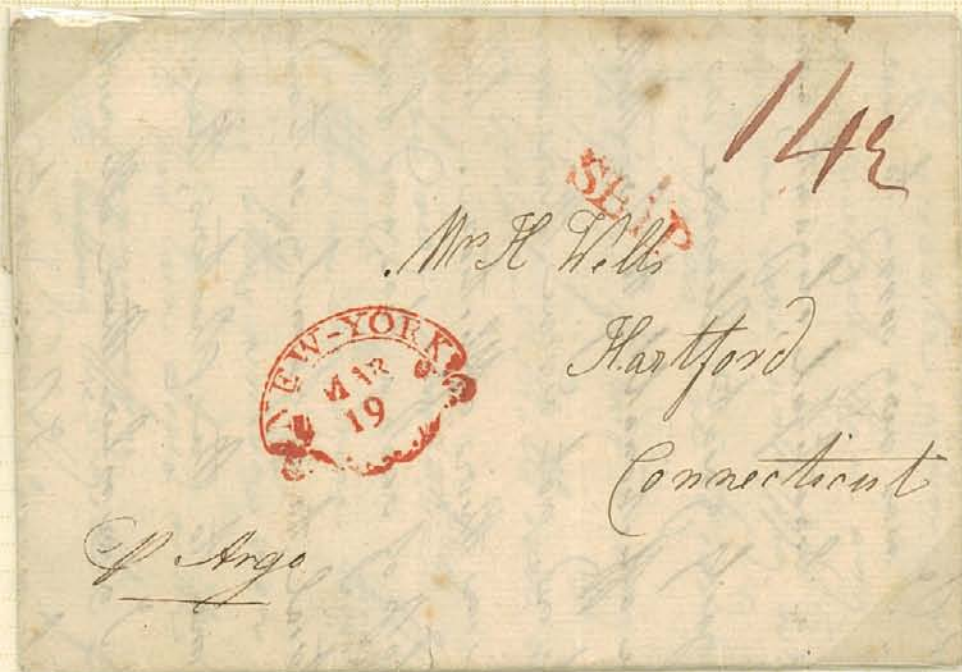 14½
SHIP
Mrs H Wells
Hartford
Connecticut
NEW-YORK
MAR
19
p Argo